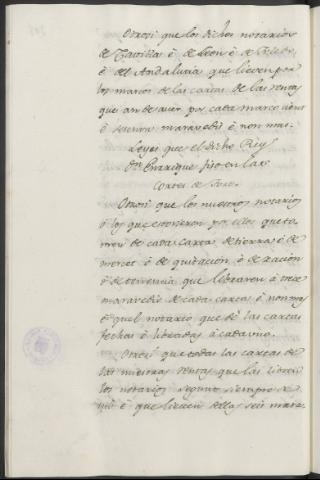 Otrosi que los dichos notarios
de Castilla ò de Leon ò de Toledo
ò del Andalucia que lieven por
los marcos de las cartas de las rentas
que an de aver por cada marco
ò maravedis ò non mas.
Leyes que el dicho Rey
Dn Enrrique fiso en las
Cortes de Toro.
Otrosi que los nuestros notarios
ò los que estovieren por ellos que to
men de cada carta de tierra ò de
merced ò de quitacion ò de racion
ò de tenencia que libraren à tres
maravedis de cada carta ò non mas
è quel notario que dè las cartas
fechas è libradas à cada uno.
Otrosi que todas las cartas de
las nuestras rentas que las libren
los notarios segunt siempre se
è que lieven dellas seis mara